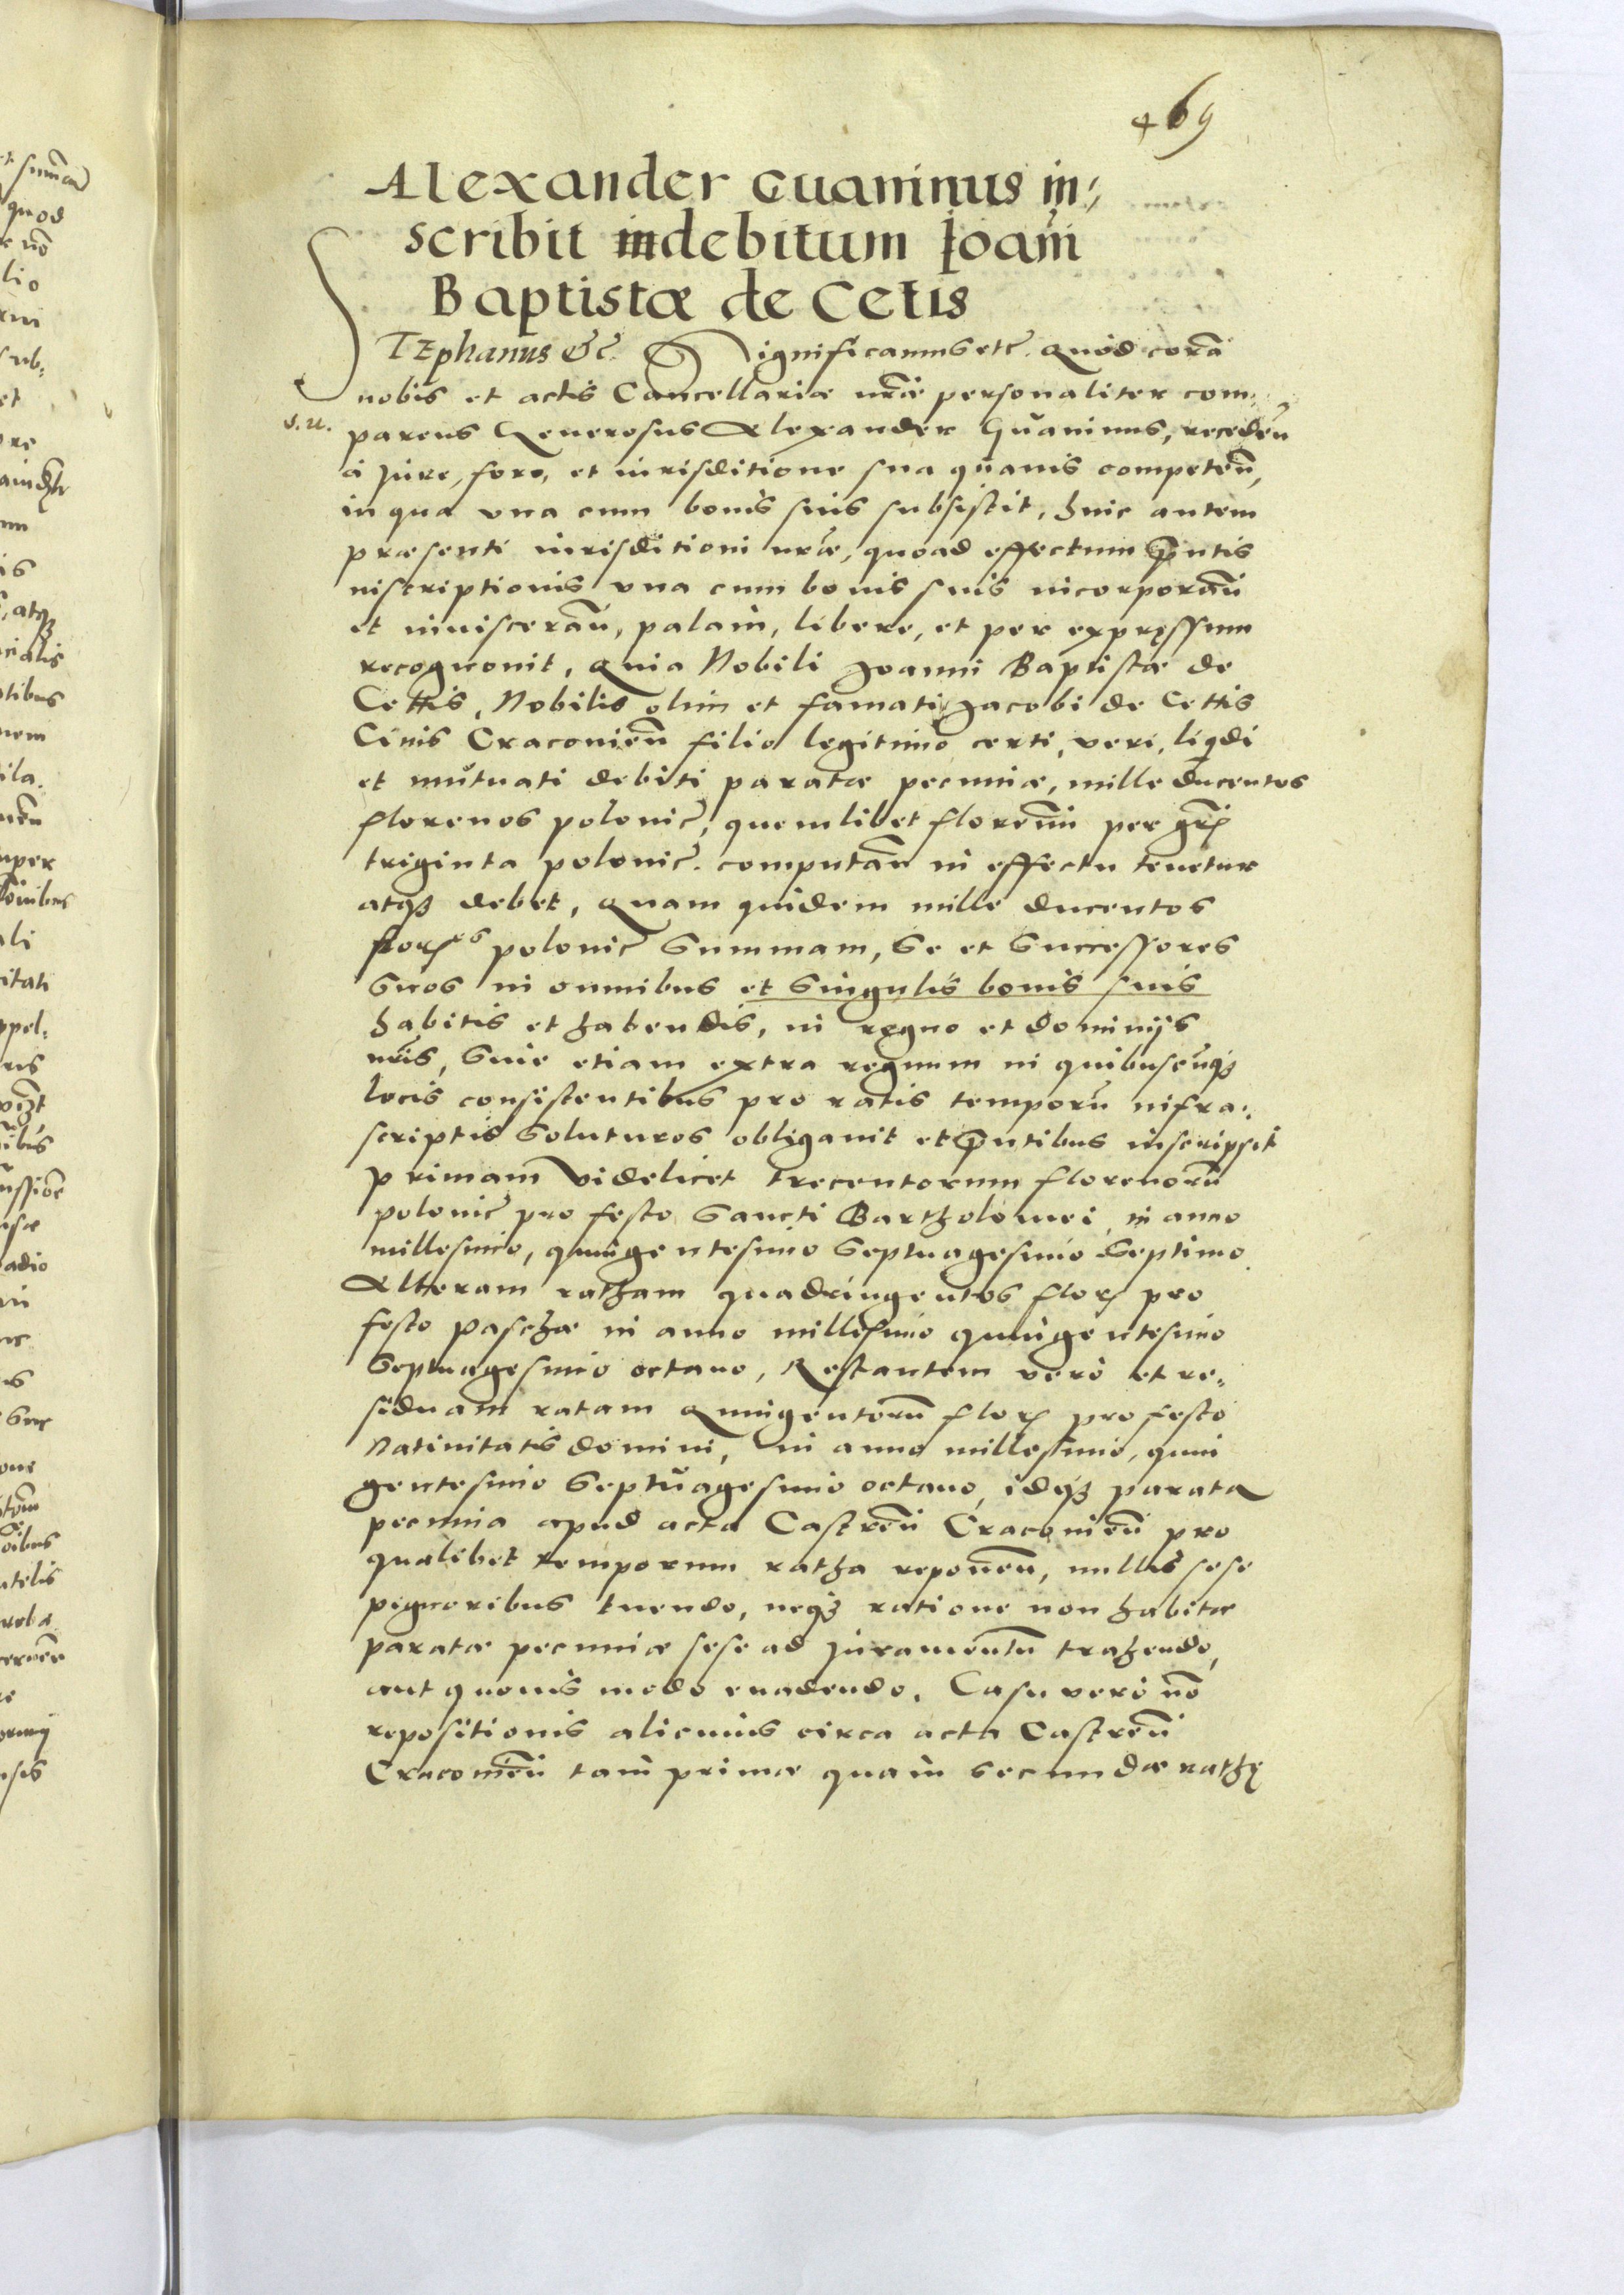 469
Alexander Guaninus in,
scribit in debitum Joañi
Baptistæ de Cetis
STEphanus &c̃. Significamus etc̃. Quod corã
nobis et actis Cancellariæ nr̃æ personaliter com,
s. u.
parens Generosus Alexander Guaninus, recedeñ
à jure, foro, et iurisditione sua quauis competeñ,
in qua vna cum bonis suis subsistit, huic autem
præsenti iurisditioni nr̃æ, quoad effectum p̃ntis
inscriptionis vna cum bonis suis incorporañ
et inuiscerañ, palam, libere, et per expressum
recognouit, Quia Nobili Joanni Baptistæ de
Cettis, Nobilis olim et famati Jacobi de Cettis
Ciuis Cracovieñ filio legitimo certi, veri, liqdi
et mutuati debiti paratæ pecuniæ, mille ducentos
florenos polonic̃, quemlibet floreñum per gr̃
triginta polonic̃. computañ in effectu tenetur
atqȝ debet, Quam quidem mille ducentos
flor̃os polonic̃ summam, se et successores
suos in omnibus et singulis bonis suis
habitis et habendis, in regno et dominijs
nr̃is, siue etiam extra regnum in quibuscũqȝ
locis consistentibus pro ratis temporũ infra:
scriptis soluturos obligauit et p̃ntibus inscripsit
primam videlicet trecentorum florenorũ
polonic̃ pro festo Sancti Bartholomei in anno
millesimo, quingentesimo septuagesimo septimo
Alteram ratham quadringentos flor̃ pro
festo Paschæ in anno millesimo quingentesimo
septuagesimo octauo, Restantem verò et re,
siduam ratam Quingentorũ flor̃ pro festo
Natiuitatis domini, in anno millesimo, quin
gentesimo septuagesimo octauo, idqȝ parata
pecunia apud acta Castreñ Cracovieñ pro
qualibet temporum ratha reponeñ, nullis sese
pignoribus tuendo, neqȝ ratione non habitæ
paratæ pecuniæ sese ad juramentũ trahendo,
aut quouis modo euadendo. Casu verò nõ
repositionis alicuius circa acta Castreñ
Cracovieñ tam primæ quàm secundæ rathę